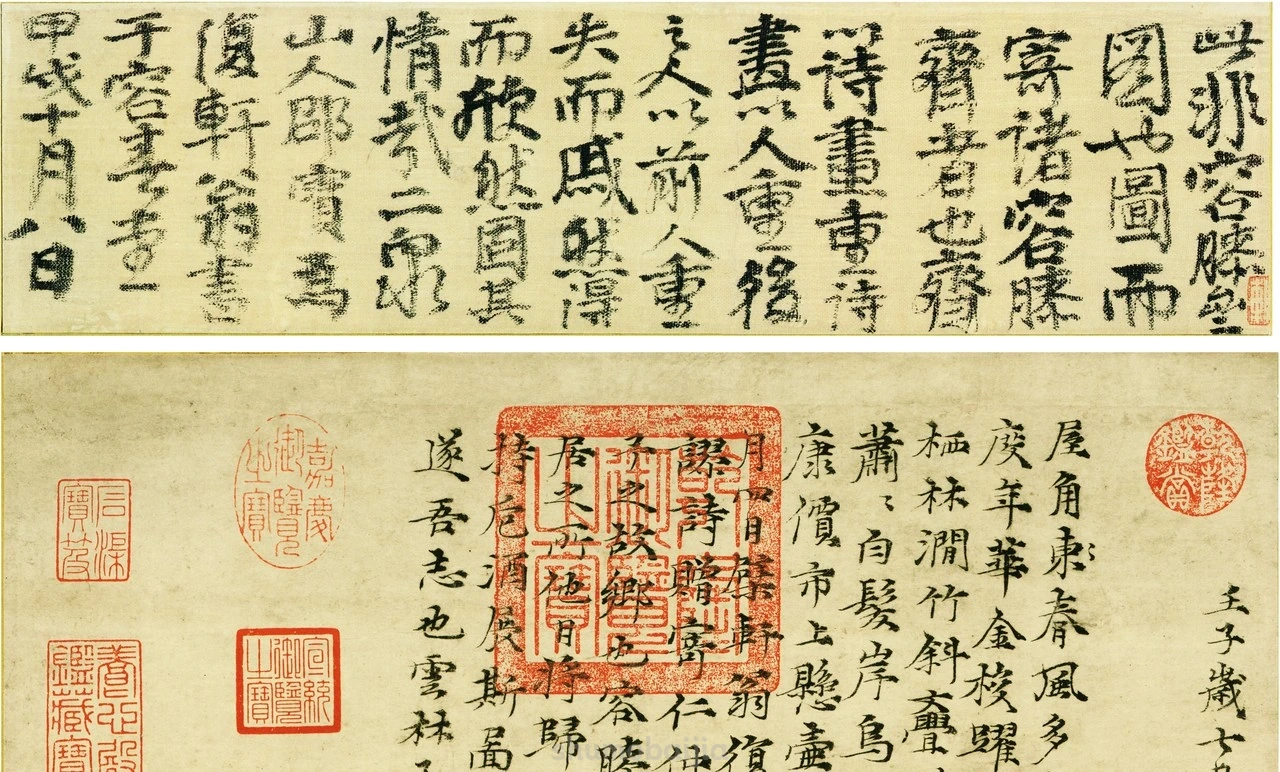 此非容膝齋
圖也圖而
寄諸容膝
齋者也齋
以詩畫重詩
畫以人重後
之人以前人重
失而戚然得
而欣然固其
情哉二泉
山人邵寶為
復軒翁書
于容春堂
甲戌十月八日
乾隆鑑賞
壬子歲七
屋角東〻春風多
廋年華金梭躍
栖林澗竹斜疊
蕭〻白髮岸烏
康價市上懸壺
月四日檗軒翁復
謬詩贈寄仁仲
予之故鄉也容膝
居之所他日將歸
持卮酒展斯圖
遂吾志也雲林
乾隆御覽之寶
嘉慶御覽之寶
宣統御覽之寶
石渠寶笈
養心殿鑑藏寶